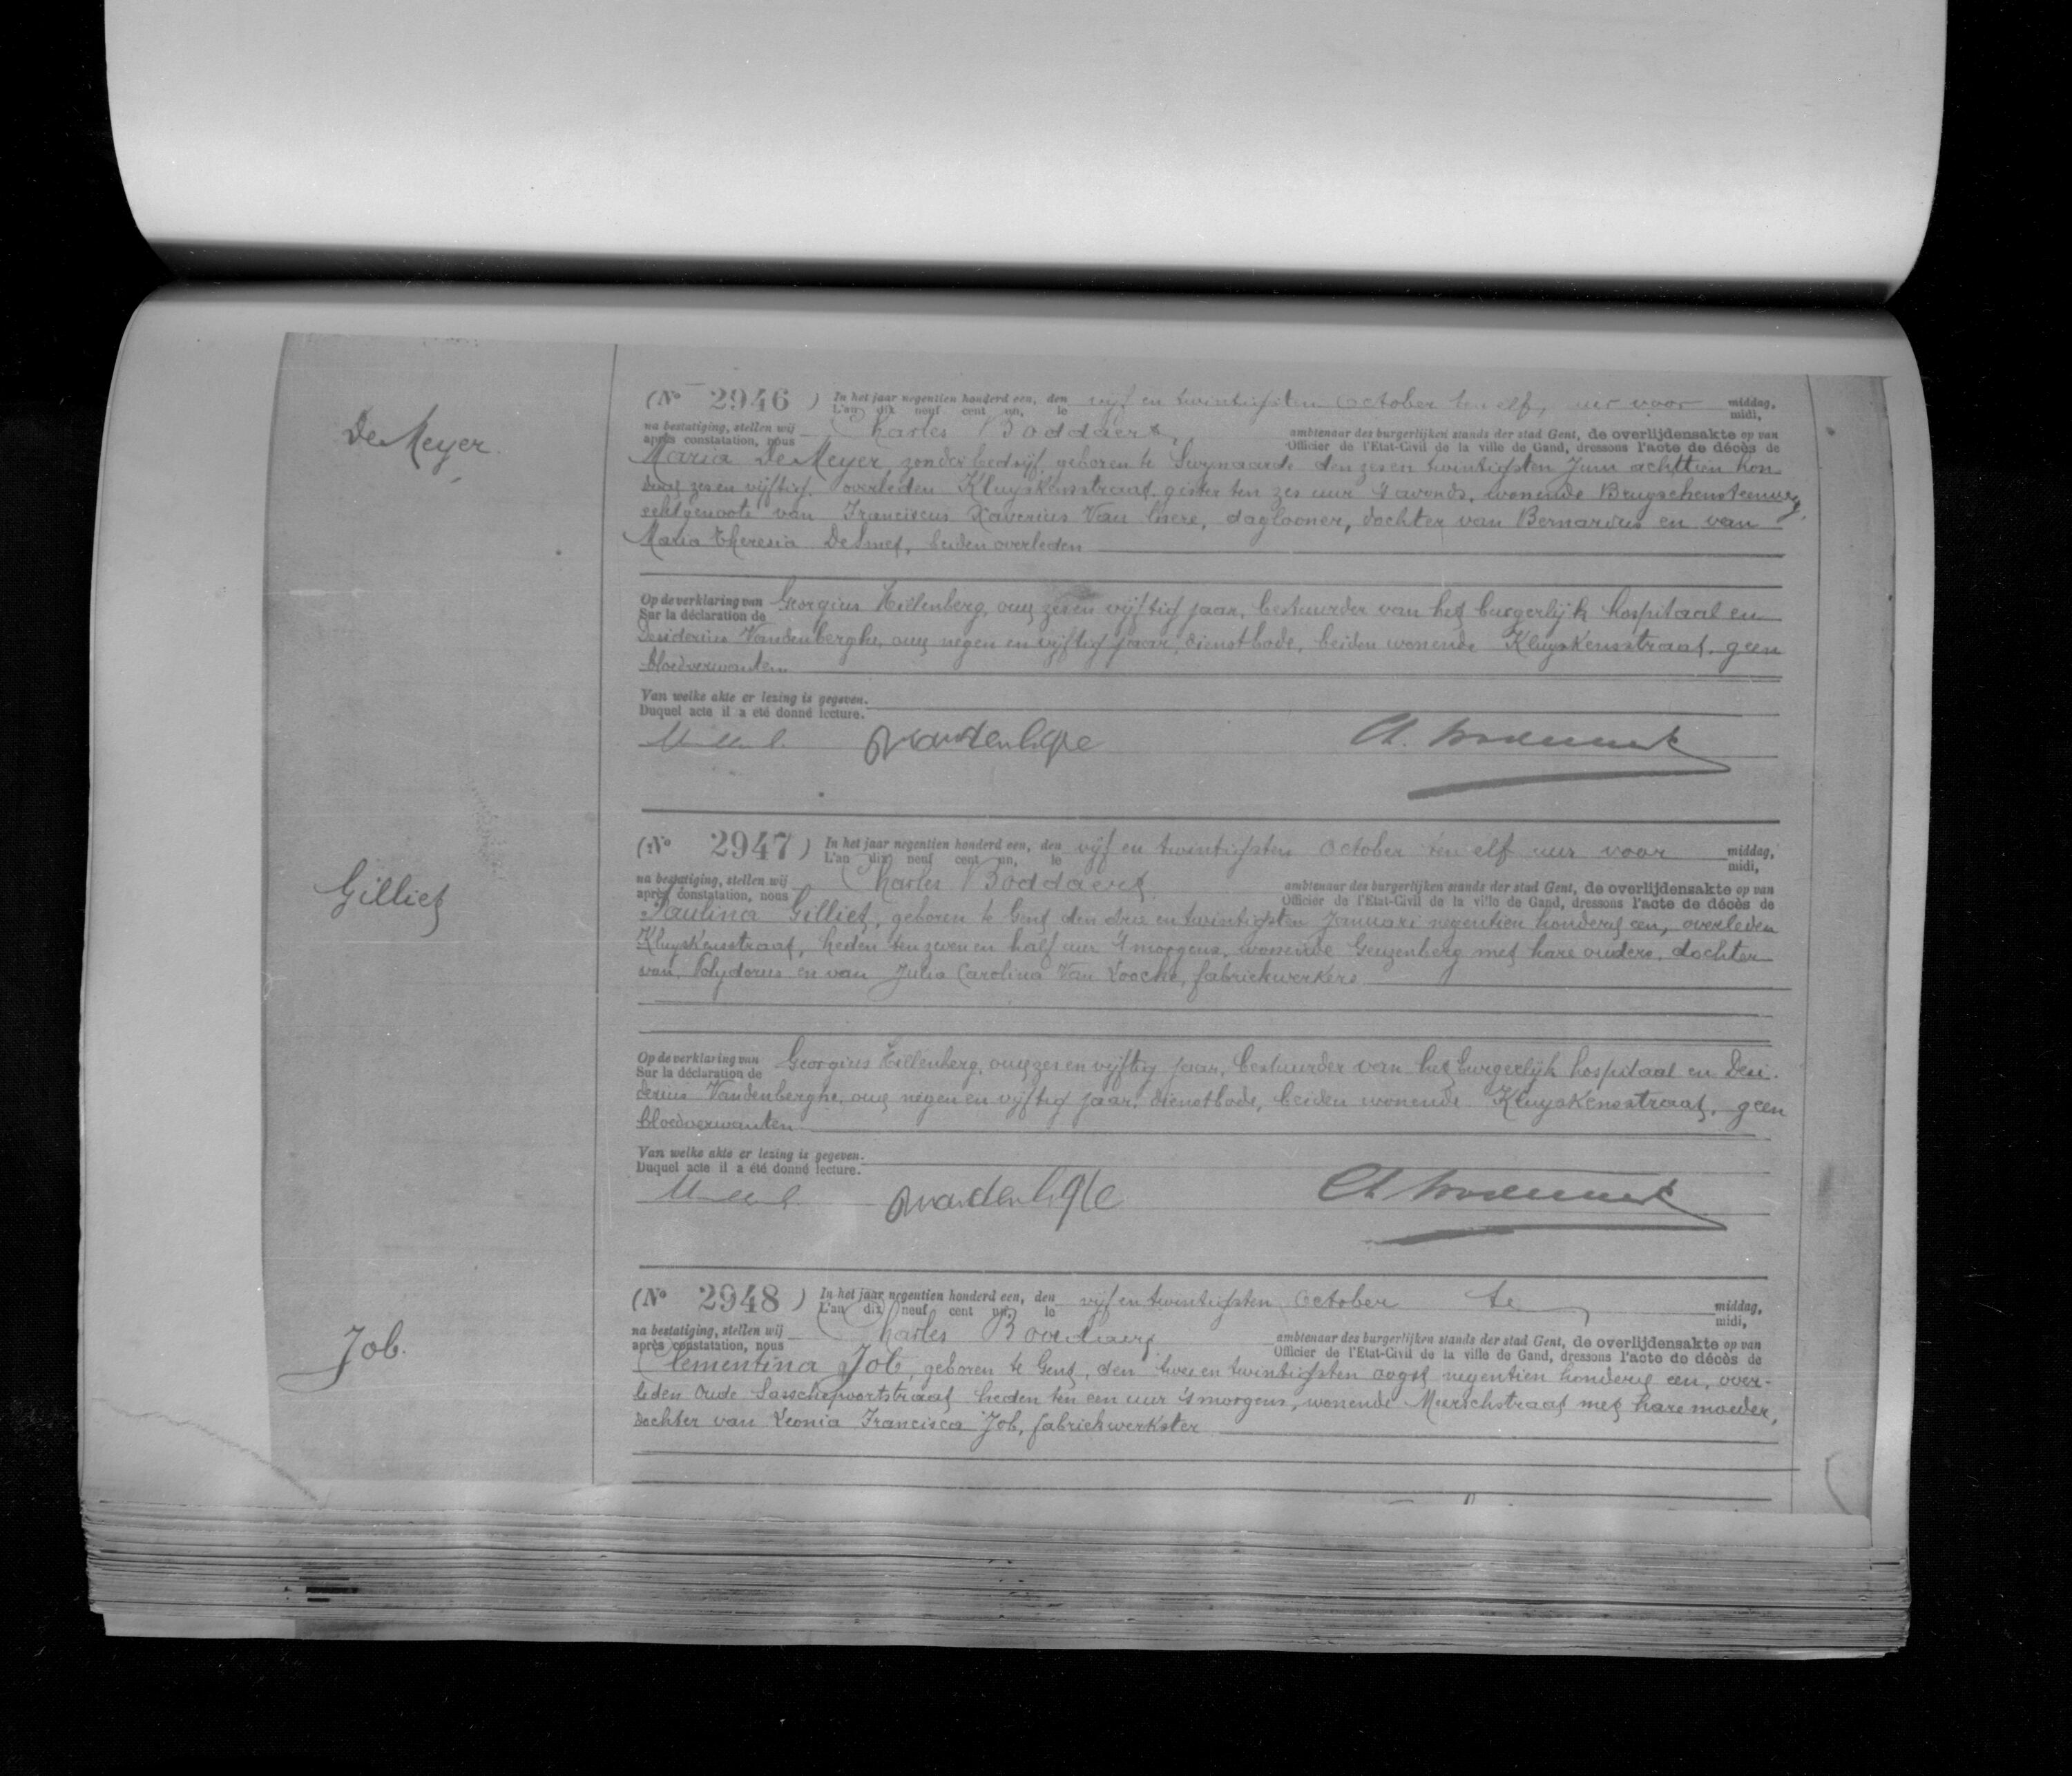 De Meyer
(No 2946) In het jaar negentien honderd een, den vijf en twintigsten october ten elf uur voor middag,
L'an dix neuf cent un, le midi,
na bestatiging, stellen wij Charles Boddaert ambtenaar des burgerlijken stands der stad Gent, de overlijdensakte op van
après constatation, nous Officier de l'Etat-Civil de la ville de Gand, dressons l'acte de décès de
Maria De Meyer, zonder bedrijf, geboren te Swijnaarde den zes en twintigsten Juni achttien hon-
derd zes en vijftig, overleden Kluyskensstraat, gister ten zes uur 's avonds, wonende Brugschensteenweg,
echtgenoote van Franciscus Xaverius Van, daglooner, dochter van Bernardus en van
Maria Theresia De Smet, beiden overleden
Op de verklaring van Georgius Hillenberg, oud zes en vijftig jaar, bestuurder van het burgerlijk hospitaal en
Sur la déclaration de
Desiderius Vandenberghe, oud negen en vijftig jaar, dienstbode, beiden wonende Kluyskensstraat, geen
bloedverwanten
Van welke akte er lezing is gegeven.
Duquel acte il a été donné lecture.
Gilliet
(No 2947) In het jaar negentien honderd een, den vijf en twintigsten october ten elf uur voor middag,
L'an dix neuf cent un, le midi,
na bestatiging, stellen wij Charles Boddaert ambtenaar des burgerlijken stands der stad Gent, de overlijdensakte op van
après constatation, nous Officier de l'Etat-Civil de la ville de Gand, dressons l'acte de décès de
Paulina Gilliet, geboren te Gent den drie en twintigsten Januari negentien honderd een, overleden
Kluyskensstraat, heden ten zeven en half uur 's morgens, wonende Geuzenberg met hare ouders, dochter
van Polydorus en van Julia Carolina Van Loocke, fabriekwerkers
Op de verklaring van Georgius Hillenberg, oud zes en vijftig jaar, bestuurder van het burgerlijk hospitaal en Desi-
Sur la déclaration de
derius Vandenberghe, oud negen en vijftig jaar, dienstbode, beiden wonende Kluyskensstraat, geen
bloedverwanten
Van welke akte er lezing is gegeven.
Duquel acte il a été donné lecture.
Job.
(No 2948) In het jaar negentien honderd een, den vijf en twintigsten october te middag,
L'an dix neuf cent un, le midi,
na bestatiging, stellen wij Charles Boddaert ambtenaar des burgerlijken stands der stad Gent, de overlijdensakte op van
après constatation, nous Officier de l'Etat-Civil de la ville de Gand, dressons l'acte de décès de
Clementina Job, geboren te Gent, den twee en twintigsten oogst negentien honderd een, over-
leden Oude Sasschepvortstraat heden ten een uur 's morgens, wonende Meerschstraat met hare moeder,
dochter van Leonia Francisca Job, fabriekwerkster